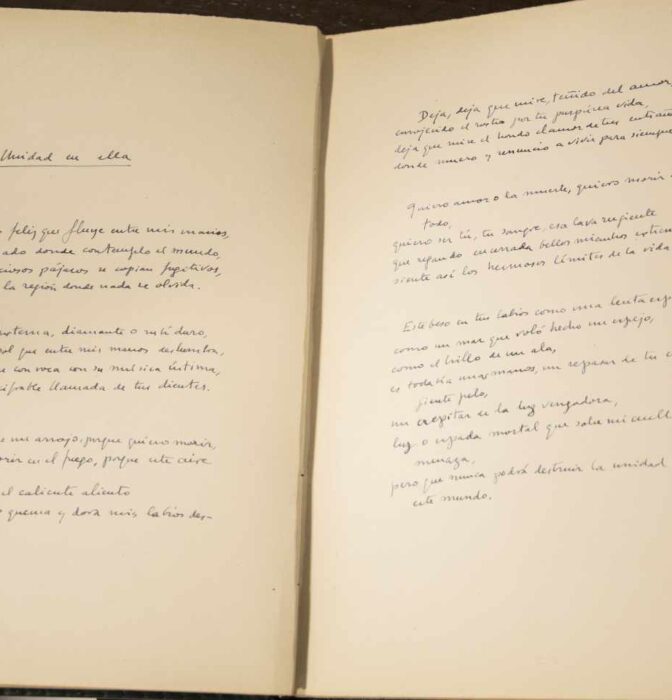 Unidad en ella
feliz que fluye entre mis manos,
ado donde contemplo el mundo,
ciosos pájaros se copian fugitivos,
la región donde nada se olvida.
externa, diamante o rubí duro,
sol que entre mis manos deslumbra,
convoca con su música íntima,
cifrable llamada de tus dientes.
me arrojo, porque quiero morir,
orir en el fuego, porque este aire
el caliente aliento
quema y dora mis labios des-
Deja, deja que mire, teñido del amor,
enrojecido el rostro por tu purpúrea vida,
deja que mire el hondo clamor de tus entrañas
donde muero y renuncio a vivir para siempre
Quiero amor o la muerte, quiero morir
todo,
quiero ser tú, tu sangre, esa lava rugiente
que regando encerrada bellos miembros extrem
siente así los hermosos límites de la vida
Este beso en tus labios como una lenta esp
como un mar que voló hecho un espejo,
como el brillo de un ala,
es todavía unas manos, un repasar de tu c
jiente pelo,
un crepitar de la luz vengadora,
luz o espada mortal que sobre mi cuello
menaza,
pero que nunca podrá destruir la unidad
este mundo.